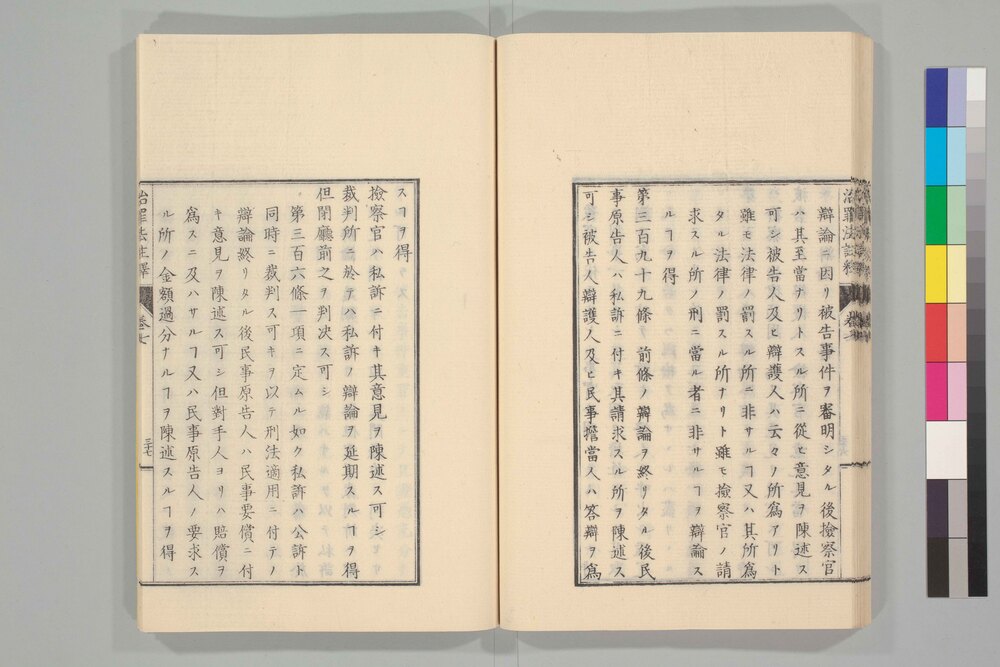 治罪法註釋 卷七
辯論ニ因リ被告事件ヲ審明シタル後撿察官
ハ其至當ナリトスル所ニ從ヒ意見ヲ陳述ス
可シ被告人及ヒ辯護人ハ云々ノ所爲アリト
雖モ法律ノ罰スル所ニ非サルヿ又ハ其所爲
タル法律ノ罰スル所ナリト雖モ撿察官ノ請
求スル所ノ刑ニ當ル者ニ非サルヿヲ辯論ス
ルヿヲ得
第三百九十九條 前條ノ辯論ヲ終リタル後民
事原告人ハ私訴ニ付キ其請求スル所ヲ陳述ス
可シ被告人辯護人及ヒ民事擔當人ハ答辯ヲ爲
スヿヲ得
撿察官ハ私訴ニ付キ其意見ヲ陳述ス可シ
裁判所ニ於テハ私訴ノ辯論ヲ延期スルヿヲ得
但閉廳前之ヲ判决ス可シ
第三百六條一項ニ定ムル如ク私訴ハ公訴ト
同時ニ裁判ス可キヲ以テ刑法適用ニ付テノ
辯論終リタル後民事原告人ハ民事要償ニ付
キ意見ヲ陳述ス可シ但對手人ヨリハ賠償ヲ
爲スニ及ハサルヿ又ハ民事原告人ノ要求ス
ル所ノ金額過分ナルヿヲ陳述スルヿヲ得
治罪法註釋 卷七